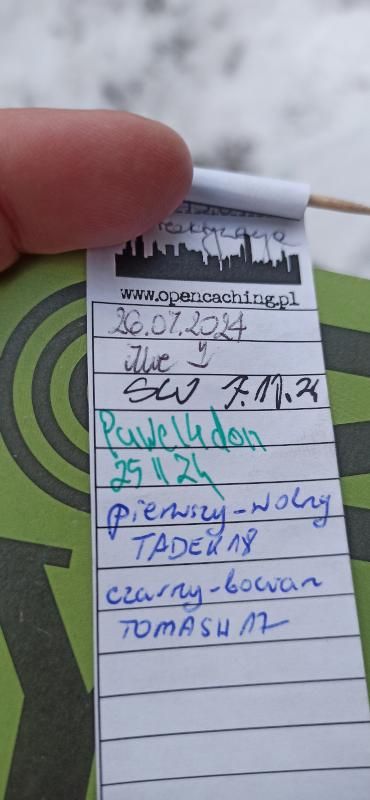 www.opencaching.pl
26.07.2024
SW 7.11.24
Pawel4don
25 11 24
pierwszy-wolny
TADEK18
czarny-bocian
TOMASH17